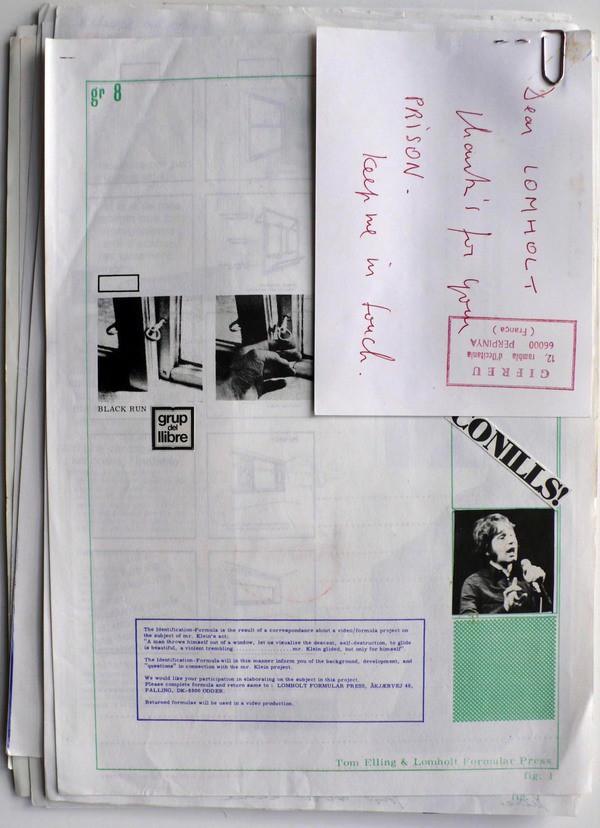 gr 8
Dear LOMHOLT
thank's for your
PRISON.
Keep me in touch.
GIFREU
12, rambla d'Occitania
66000 PERPINYA
( França )
BLACK RUN
grup
del
llibre
CONILLS!
The Identification-Formula is the result of a correspondance about a video/formula project on
the subject of mr. Klein's act;
"A man throws himself out of a window, let us visualise the descent, self-destruction, to glide
is beautiful, a violent trembling ........................mr. Klein glided, but only for himself".
The Identification-Formula will in this manner inform you of the background, development, and
"questions" in connection with the mr. Klein project.
We would like your participation in elaborating on the subject in this project.
Please complete formula and return same to : LOMHOLT FORMULAR PRESS, ÅKJÆRVEJ 48,
FALLING, DK-8300 ODDER.
Returned formulas will be used in a video production.
Tom Elling & Lomholt Formular Press
fig. 1